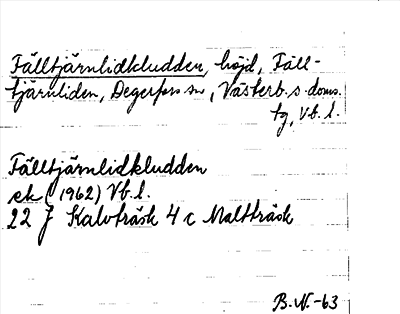 Fälltjärnlidkludden, höjd, Fäll-
tjärnliden, Degerfors sn, Västerb. s. doms.
tg, Vb. l.
Fälltjärnlidkludden
ek (1962) Vb. l.
22 J Kalvträsk 4 c Maltträsk
B. N. -63